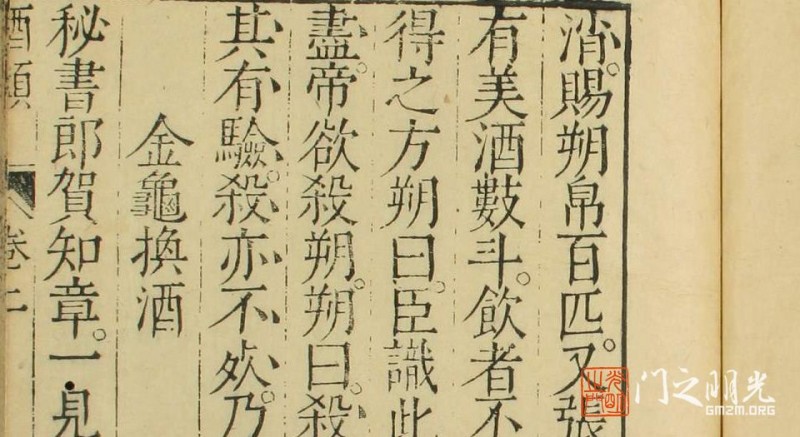 消。賜朔帛百匹。又張
有美酒數斗。飲者不
得之方朔曰。臣識此
盡。帝欲殺朔。朔曰。殺
其有驗。殺亦不死。乃
金龜換酒
秘書郎賀知章。一見
酒
卷二
门之明光
GMZM.ORG